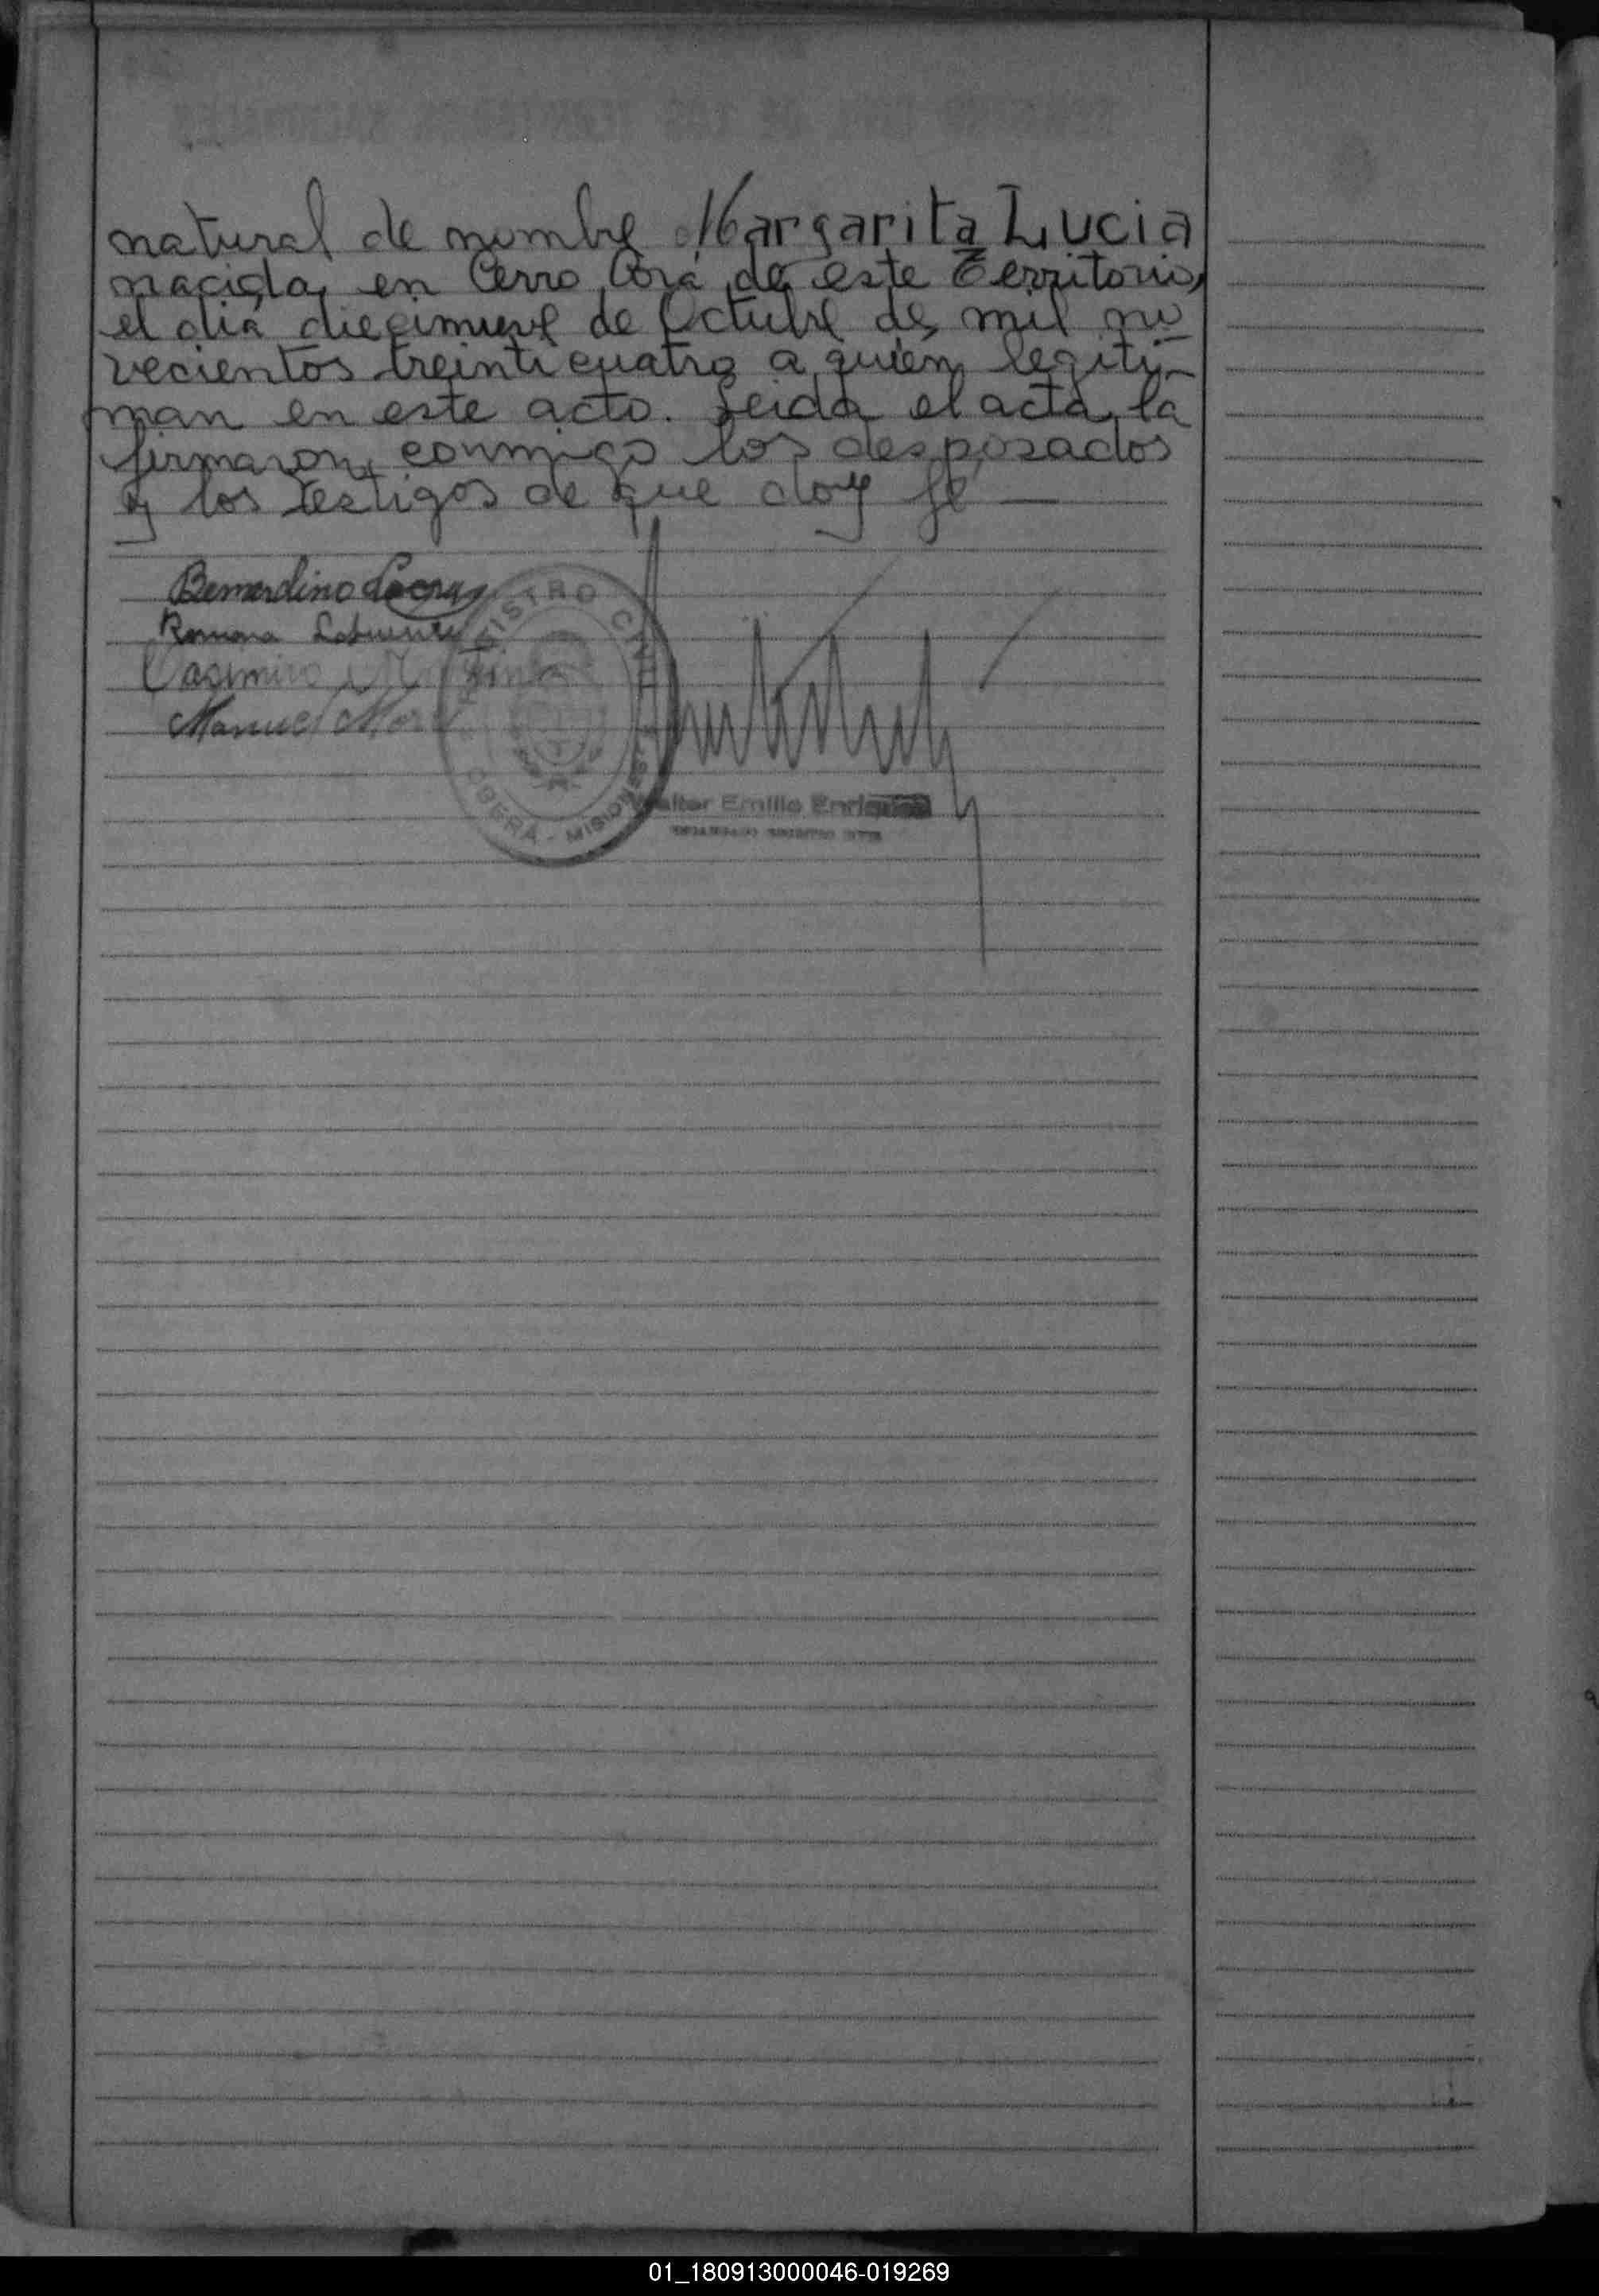 natural de nombre Margarita Lucia
nacida, en Cerro Corá de este Territorio,
el dia diecinueve de Octubre de mil no
vecientos treinticuatro a quien legiti-
man en este acto. Leida el acta, la
firmaron conmigo los desposados
y los testigos de que doy fé —
Bernardino
Ramona
Casimiro
Manuel
REGISTRO CIVIL
OBERÁ - MISIONES
Walter Emilio Enriquez
01_180913000046-019269